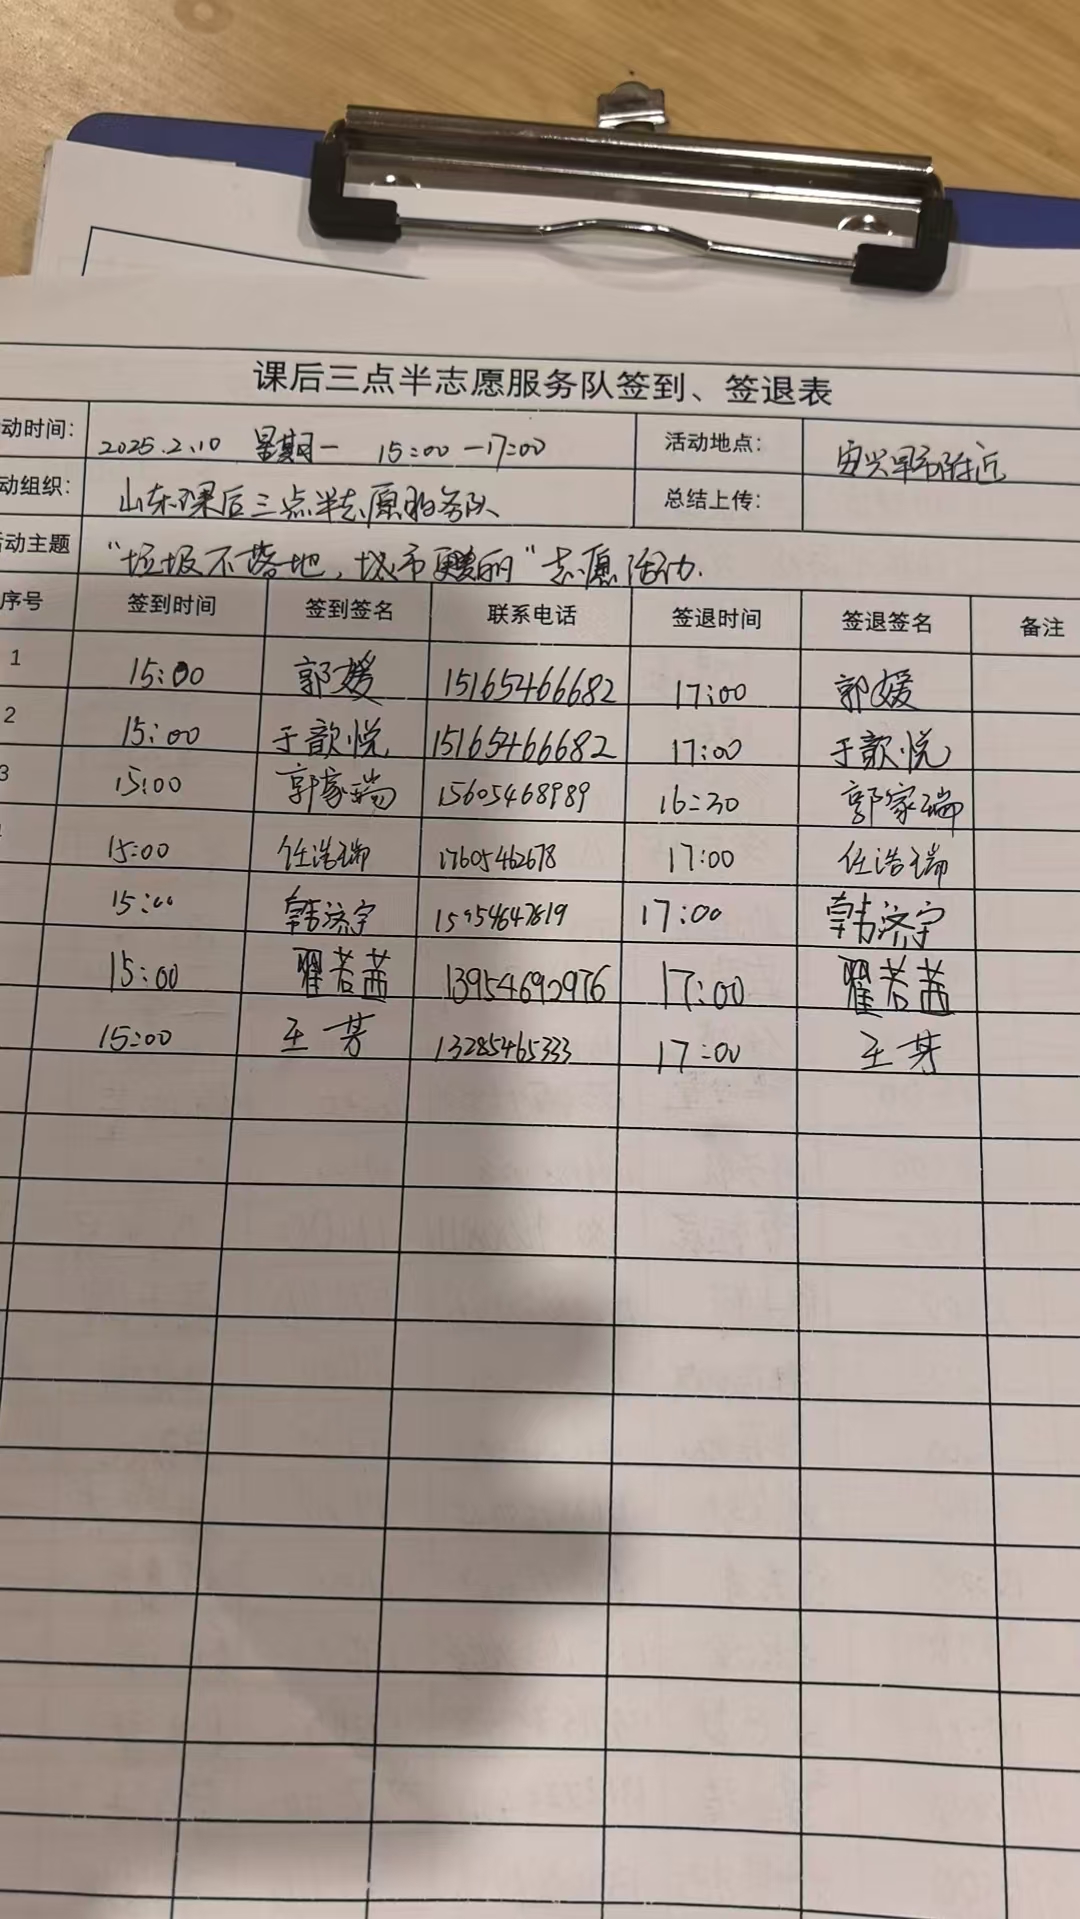 课后三点半志愿服务队签到、签退表
动时间: 2025.2.10 星期一 15:00—17:00 活动地点: 安兴早市附近
动组织: 山东课后三点半志愿服务队 总结上传:
活动主题 “垃圾不落地，城市更美丽”志愿活动.
序号 签到时间 签到签名 联系电话 签退时间 签退签名 备注
1 15:00 郭媛 15165466682 17:00 郭媛
2 15:00 于歆悦 15165466682 17:00 于歆悦
3 15:00 郭家瑞 15605468989 16:30 郭家瑞
15:00 任浩瑞 17605462678 17:00 任浩瑞
15:00 韩济宇 15954647819 17:00 韩济宇
15:00 翟若茜 13954692976 17:00 翟若茜
15:00 王芳 13285465333 17:00 王芳